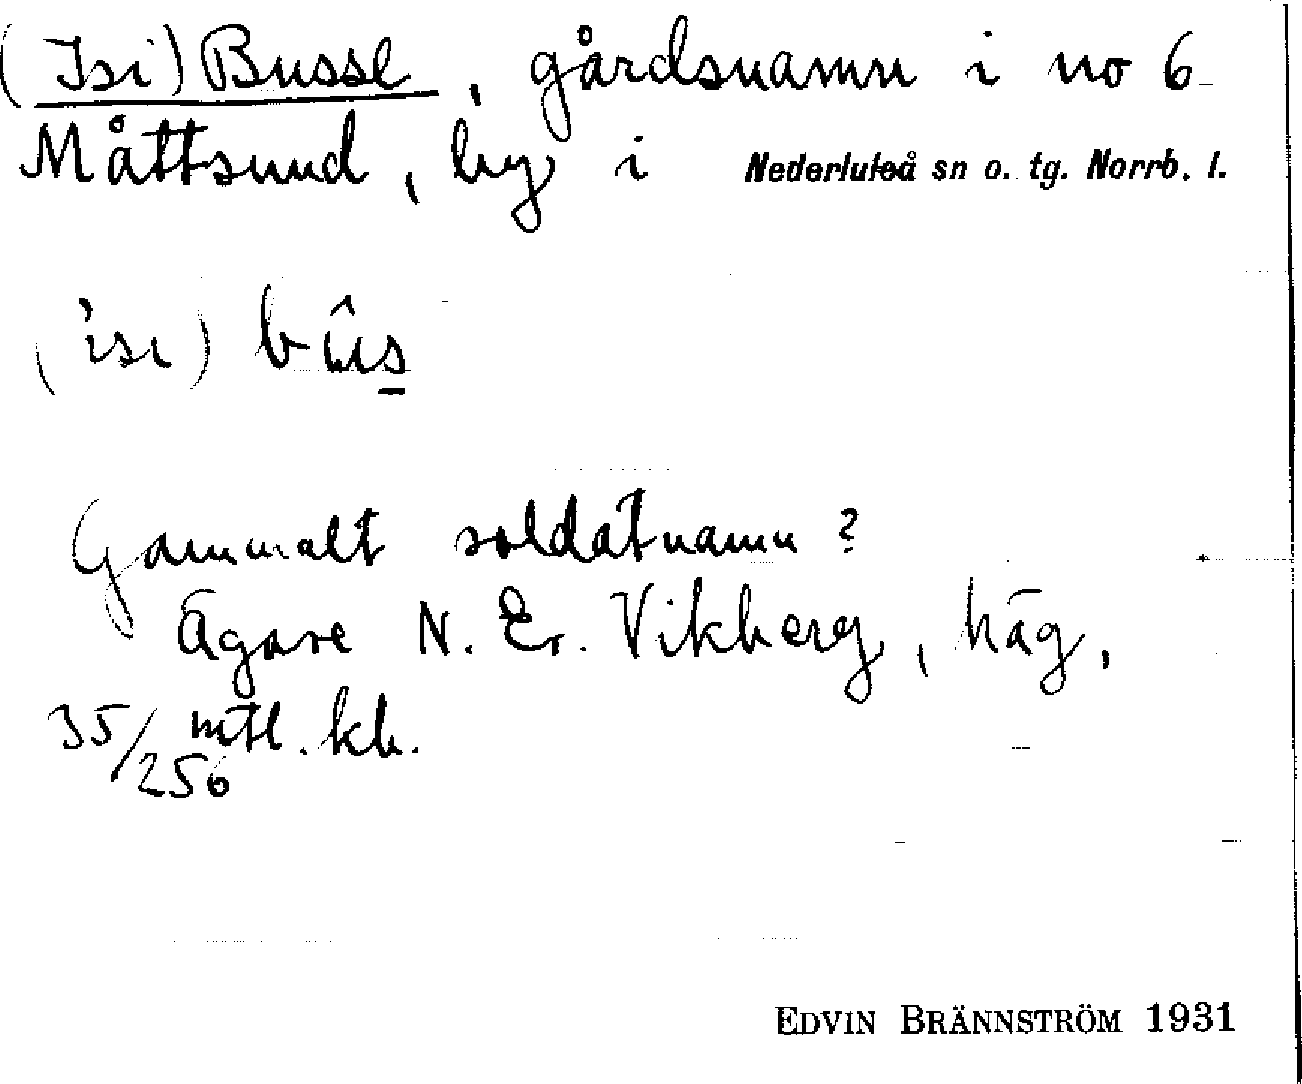 (Isi) Busse, gårdsnamn i no 6
Måttsund, by i Nederluleå sn o. tg. Norrb. l.
(ˋisi) bûs
Gammalt soldatnamn?
Ägare N. Er. Vikberg, häg,
35/256 mtl. kb.
EDVIN BRÄNNSTRÖM 1931